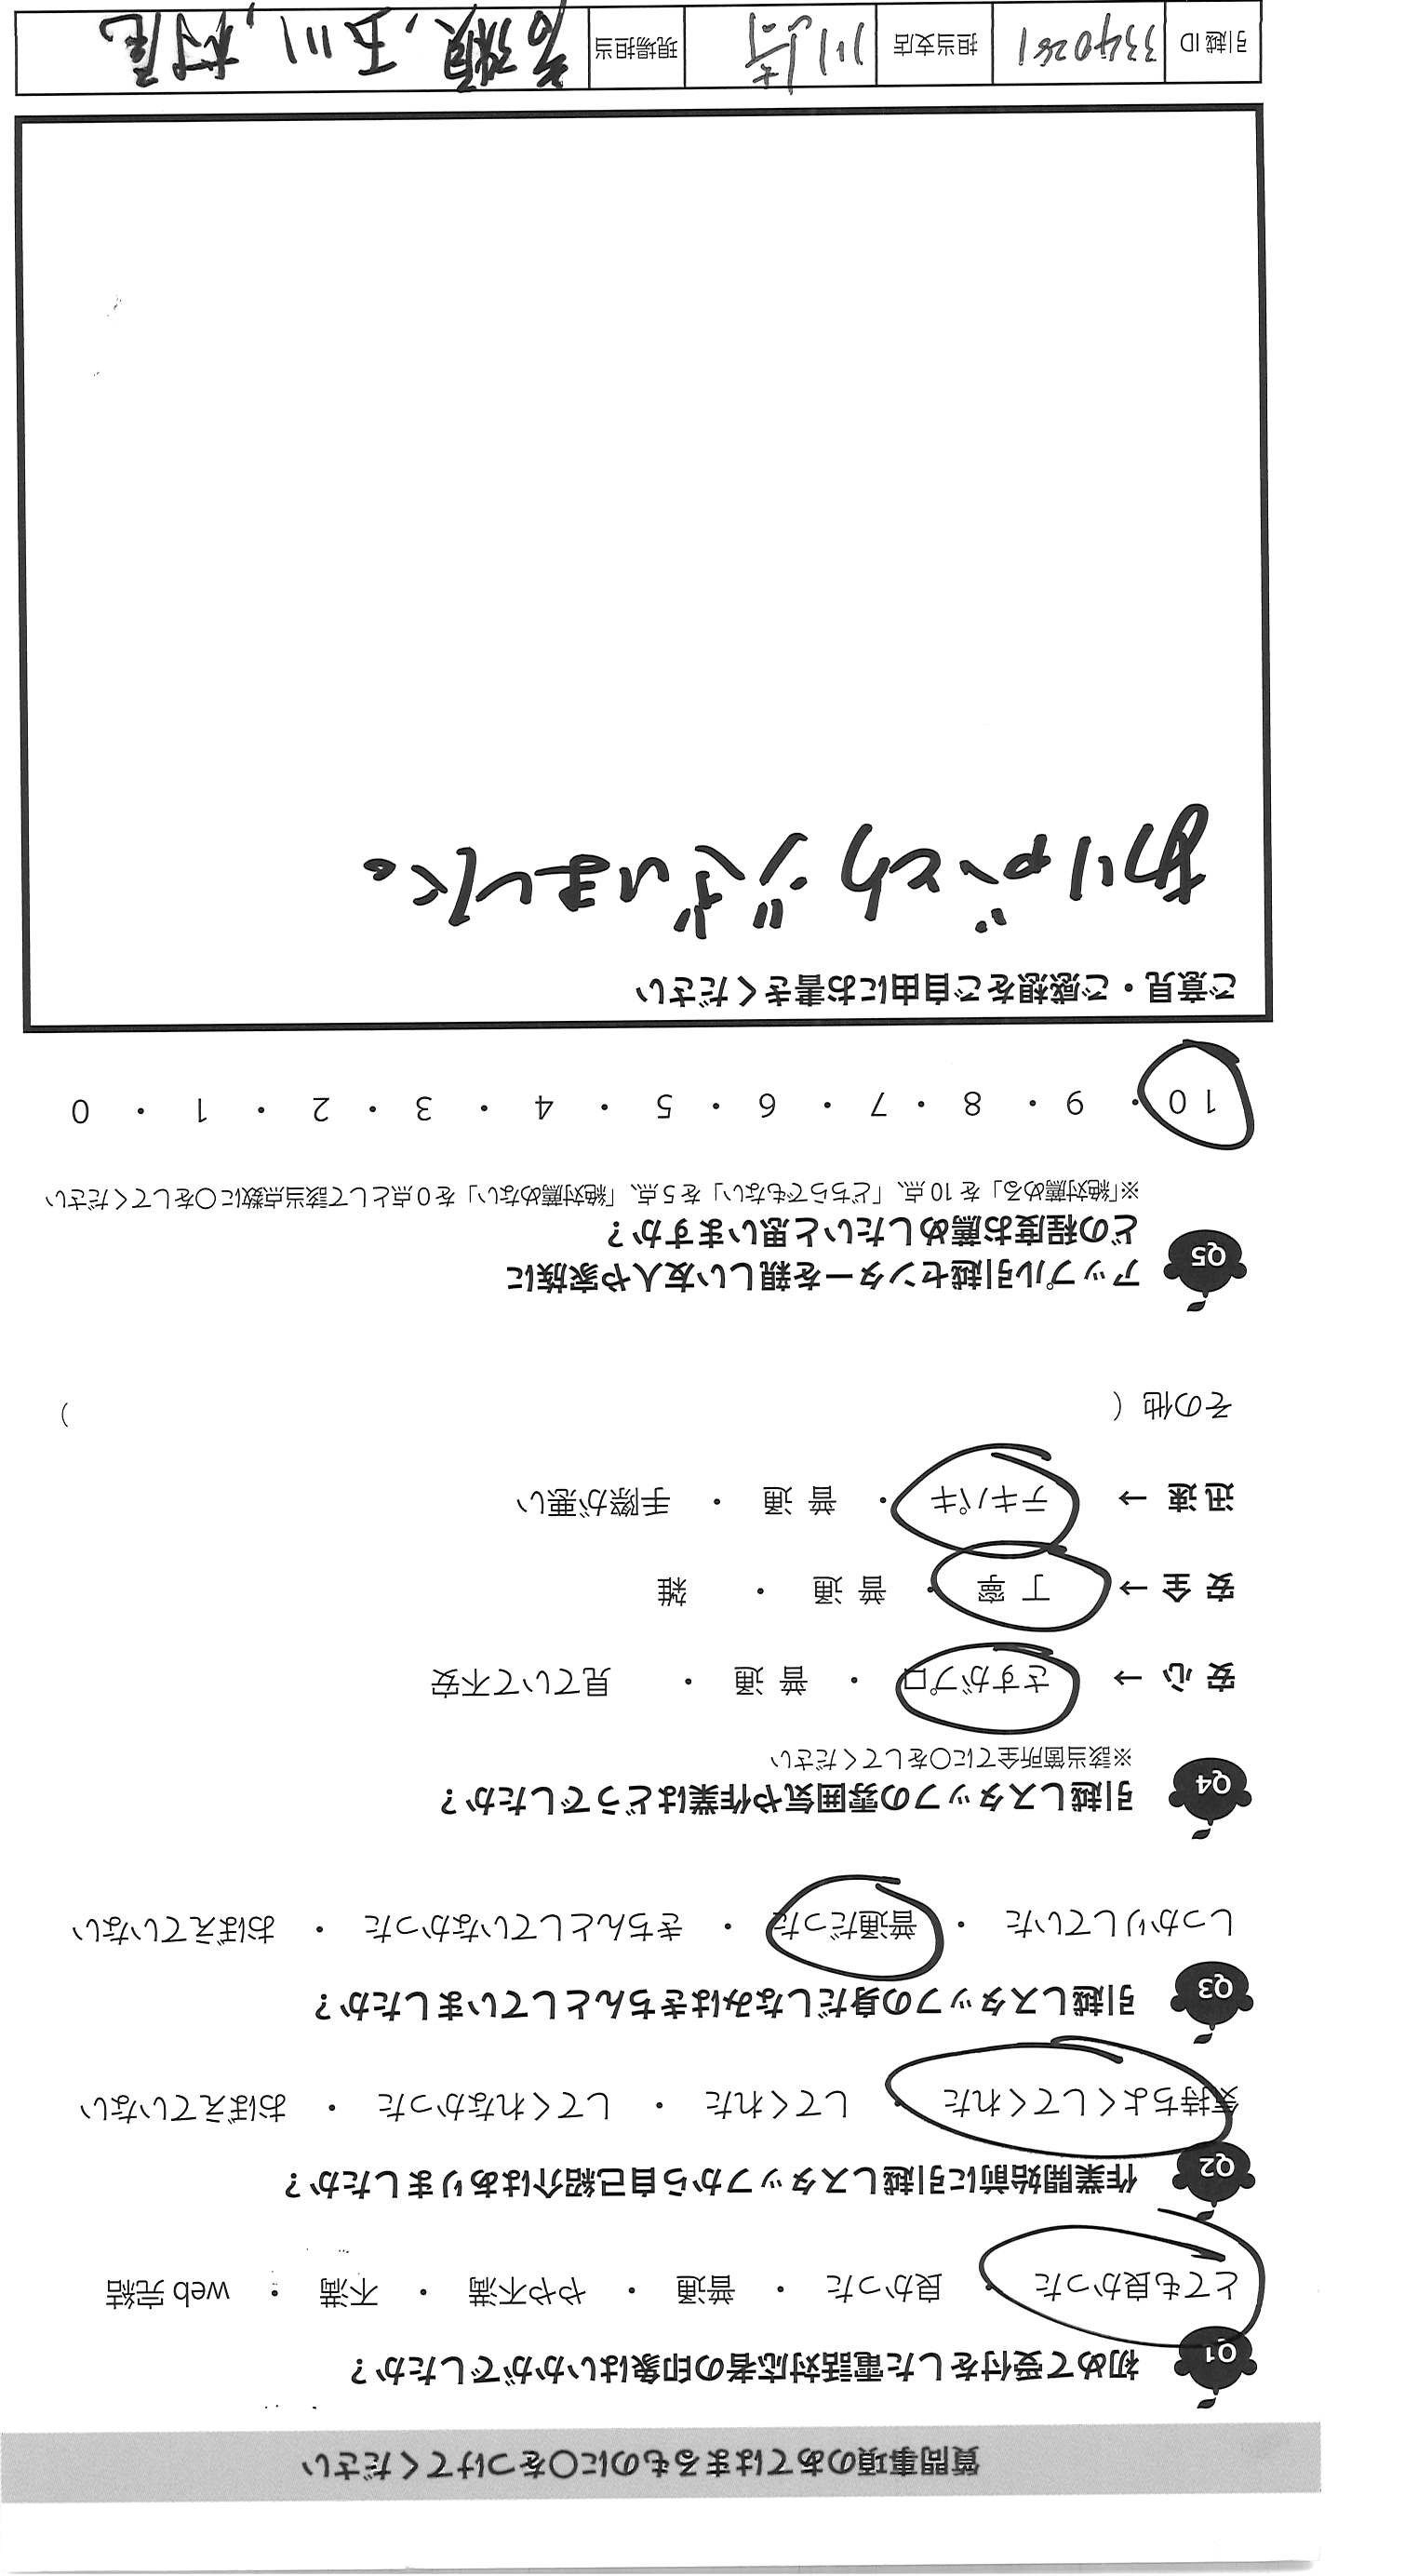 質問事項のあてはまるものに〇をつけてください
Q1 初めて受付をした電話対応者の印象はいかがでしたか？
とても良かった ・ 良かった ・ 普通 ・ やや不満 ・ 不満 ・ web 完結
Q2 作業開始前に引越しスタッフから自己紹介はありましたか？
気持ちよくしてくれた ・ してくれた ・ してくれなかった ・ おぼえていない
Q3 引越しスタッフの身だしなみはきちんとしていましたか？
しっかりしていた ・ 普通だった ・ きちんとしていなかった ・ おぼえていない
Q4 引越しスタッフの雰囲気や作業はどうでしたか？
※該当箇所全てに〇をしてください
安 心 → さすがプロ ・ 普 通 ・ 見ていて不安
安 全 → 丁 寧 ・ 普 通 ・ 雑
迅 速 → テキパキ ・ 普 通 ・ 手際が悪い
その他（ ）
Q5 アップル引越センターを親しい友人や家族に
どの程度お薦めしたいと思いますか？
※「絶対薦める」を 10 点、「どちらでもない」を 5 点、「絶対薦めない」を 0 点として該当点数に〇をしてください
10 ・ 9 ・ 8 ・ 7 ・ 6 ・ 5 ・ 4 ・ 3 ・ 2 ・ 1 ・ 0
ご意見・ご感想をご自由にお書きください
ありがとうございました。
引越 ID 3340261 担当支店 川崎 現場担当 若瀬, 玉川, 村尾